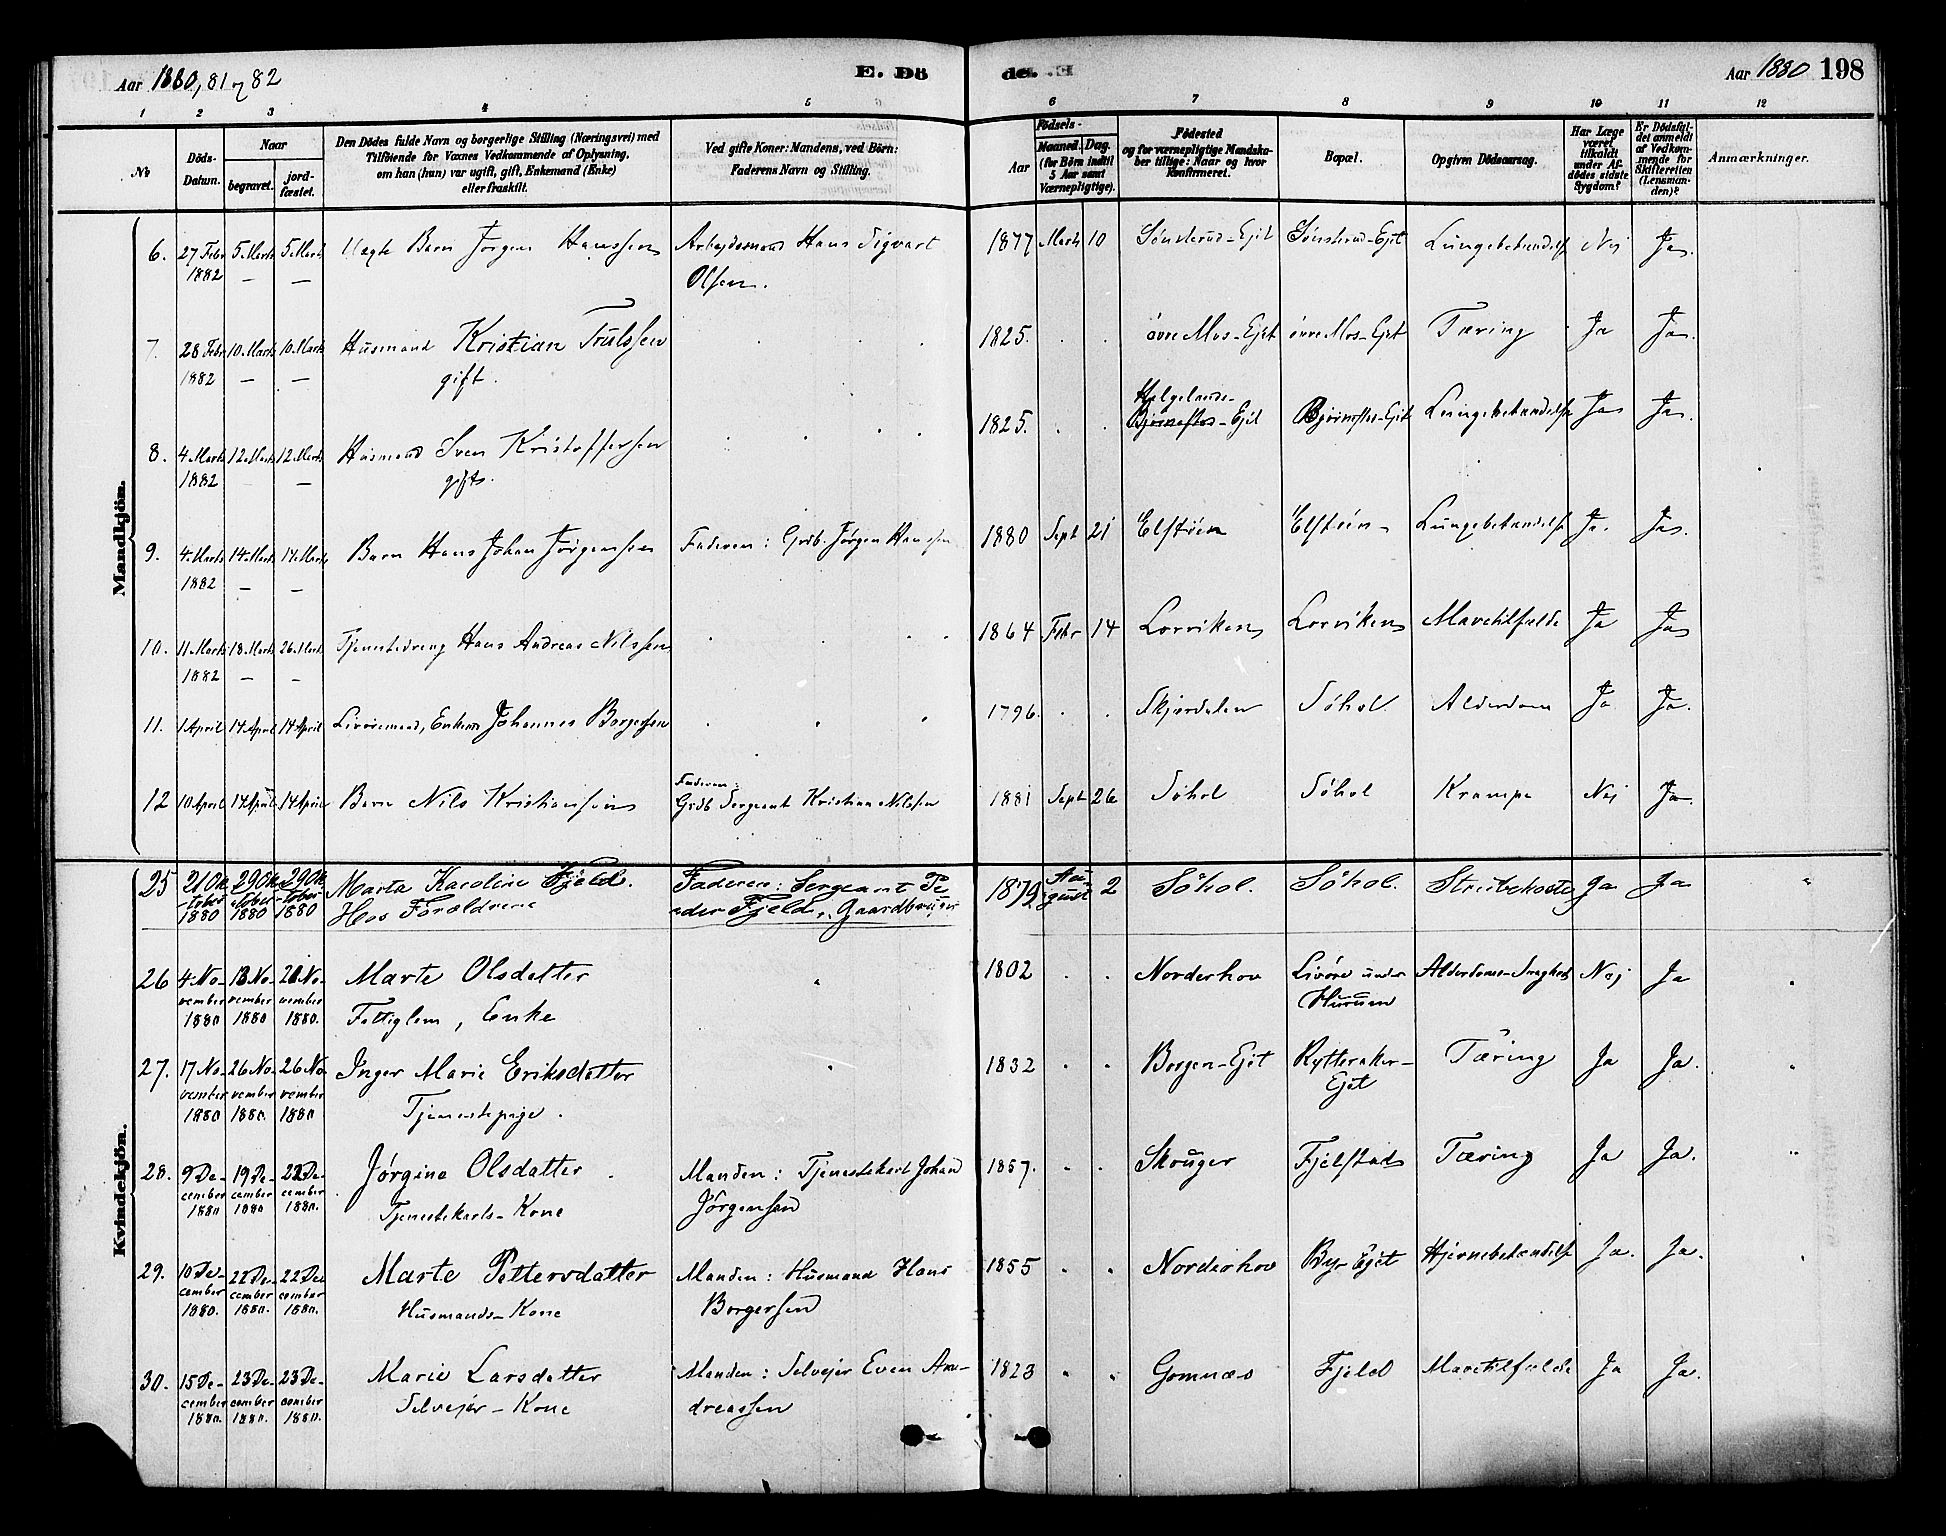 Aar 1880, 81 og 82
E. Dö
de. E.
Aar 1880 198
1 2 3 4 5 6 7 8 9 10 11 12
No
Döds-Datum.
Naar
begravet.
jord-fæstet.
Den Dödes fulde Navn og borgerlige Stilling (Næringsvei) med
Tilföiende for Voxnes Vedkommende af Oplysning,
om han (hun) var ugift, gift, Enkemand (Enke)
eller fraskilt.
Ved gifte Koner: Mandens, ved Börn:
Faderens Navn og Stilling.
Födsels-
Aar
Maaned. Dag.
(for Börn indtil
5 Aar samt
Værnepligtige).
Födested
og for værnepligtige Mandska-
ber tillige: Naar og hvor
konfirmeret.
Bopæl.
Opgiven Dödsaarsag.
Har Læge
været
tilkaldt
under Af-
dödes sidste
Sygdom?
Er Dödsfal-
det anmeldt
af Vedkom-
mende for
Skifteretten
(Lensman-
den)?
Anmærkninger.
Mandkjön.
6. 27 Febr 1882 5 Marts – 5 Marts – Uægte Barn Jørgen Hanssen Arbejdsmand Hans Sigvart Olsen. 1877 Marts 10 Sønsterud-Ejet Sønsterud-Ejet Lungebetændelse Nej Ja.
7. 28 Febr 1882 10 Marts – 10 Marts – Husmand Kristian Trulssen gift. 1825. øvre Mos-Ejet øvre Mos-Ejet Tæring Ja Ja.
8. 4 Marts 1882 12 Marts 12 Marts – Husmand Sven Kristoffersen gift. 1825. Helgelands- Bjørneflos-Ejet Bjørneflos-Ejet Lungebetændelse Ja Ja.
9. 4 Marts 1882 14 Marts – 14 Marts – Barn Hans Johan Jørgensen Faderen: Grdb. Jørgen Hanssen 1880 Sept 21 Elstøen Elstøen Lungebetændelse Ja. Ja.
10. 11 Marts 1882 18 Marts – 26 Marts – Tjenestedreng Hans Andreas Nilssen 1864 Febr 14 Lorviken Lorviken Mavetilfælde Ja Ja
11. 1 April 14 April 14 April Livøremand, Enkem Johannes Borgersen 1796. Skjærdalen Søhol Alderdom Ja Ja.
12 10 April 17 April 14 April Barn Nils Kristiansen Faderen: Grdb Sergeant Kristian Nilsen 1881 Sept 26 Søhol Søhol Krampe Nej Ja.
Kvindekjön.
25 21 Oktober 1880 29 Oktober 1880 29 Oktober 1880 Marta Karoline Fjeld. Hos Forældrene Faderen: Sergeant Peder Fjeld, Gaardbruger 1879 August 2 Søhol. Søhol. Strubehoste Ja Ja "
26 4 November 1880 13 November 1880 21 November 1880. Marte Olsdatter Fattiglem, Enke " 1802 Norderhov Livøre under Hurum Alderdoms-Svaghed Nej Ja "
27. 17 November 1880 26 November 1880. 26 November 1880 Inger Marie Eriksdatter Tjenestepige. " 1832 Borgen-Ejet Rytteraker-Ejet Tæring Ja Ja. "
28. 9 December 1880 19 December 1880 22 December 1880. Jørgine Olsdatter Tjenestekarls-Kone Manden: Tjenestekarl Johan Jørgensen 1857. Skouger Fjelstad Tæring Ja Ja. "
29. 10 December 1880. 22 December 1880. 22 December 1880. Marte Pettersdatter Husmands-Kone Manden: Husmand Hans Borgersen 1855 Norderhov By-Ejet Hjernebetændelse Ja. Ja.
30. 15 December 1880. 23 December 1880. 23 December 1880. Marie Larsdatter Selvejer-Kone Manden: Selvejer Even Andreassen 1823 Gomnæs Fjeld Mavetilfælde Ja Ja.